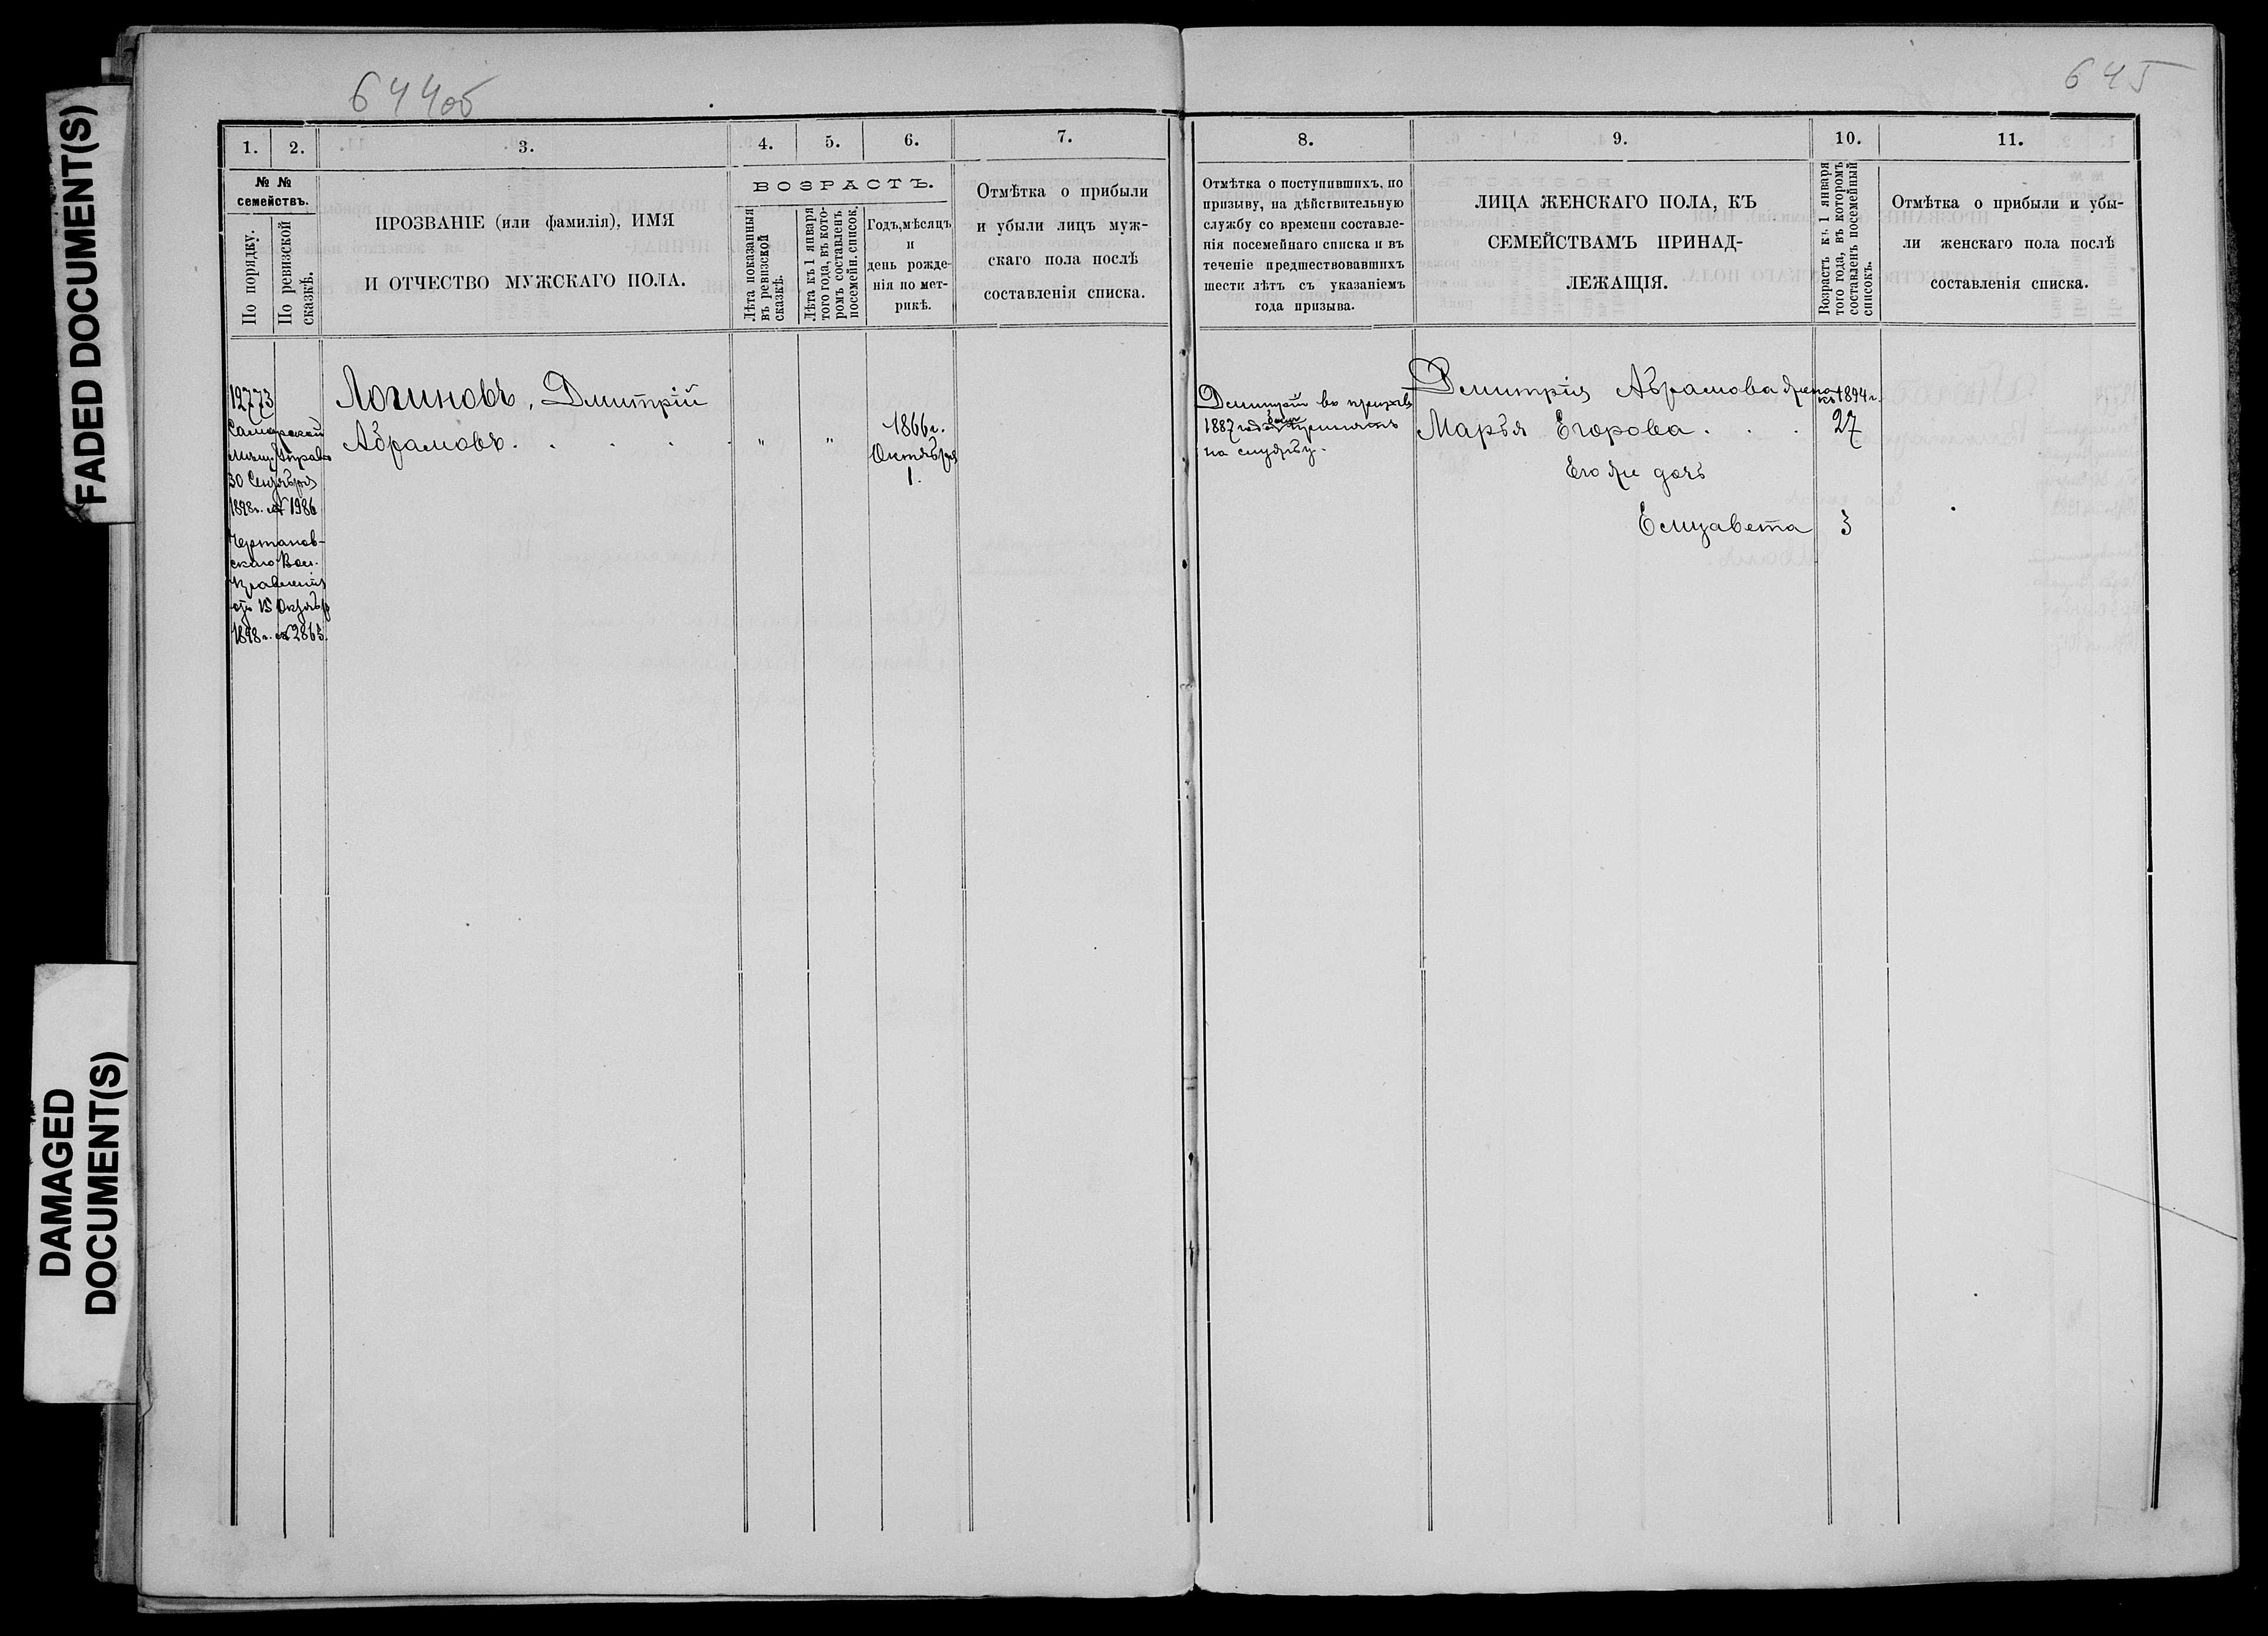 FADED DOCUMENT(S)
DAMAGED
DOCUMENT(S)
644об
1.
2.
3.
4.
5.
6.
7.
№ №
семействъ.
По порядку.
По ревизской
сказкѣ.
ПРОЗВАНІЕ (или фамилія), ИМЯ
И ОТЧЕСТВО МУЖСКАГО ПОЛА.
ВОЗРАСТЪ.
Лѣта показанныя
въ ревизской
сказкѣ.
Лѣта къ 1 января
того года, въ кото-
ромъ составленъ
посемейн. список.
Годъ, мѣсяцъ
и
день рожде-
нія по мет-
рикѣ.
Отмѣтка о прибыли
и убыли лицъ муж-
скаго пола послѣ
составленія списка.
12773
Самарской
Мѣщ. Управы
30 Сентября
1898г. № 1986
Чертанов-
скаго Вол.
Правленія
отъ 15 Октября
1898г. № 2865.
Логиновъ, Дмитрій
Абрамовъ . . . .
" "
1866г.
Октября
1.
645
8.
9.
10.
11.
Отмѣтка о поступившихъ, по
призыву, на дѣйствительную
службу со времени составле-
нія посемейнаго списка и въ
теченіе предшествовавшихъ
шести лѣтъ съ указаніемъ
года призыва.
ЛИЦА ЖЕНСКАГО ПОЛА, КЪ
СЕМЕЙСТВАМЪ ПРИНАД-
ЛЕЖАЩІЯ.
Возрастъ къ 1 января
того года, въ которомъ
составленъ посемейный
списокъ.
Отмѣтка о прибыли и убы-
ли женскаго пола послѣ
составленія списка.
Дмитрій въ призывъ
1887 года принятъ
на службу.
Дмитрія Абрамова жена
Марья Егорова . . .
Его же дочь
Елизавета
къ 1894г.
27
3